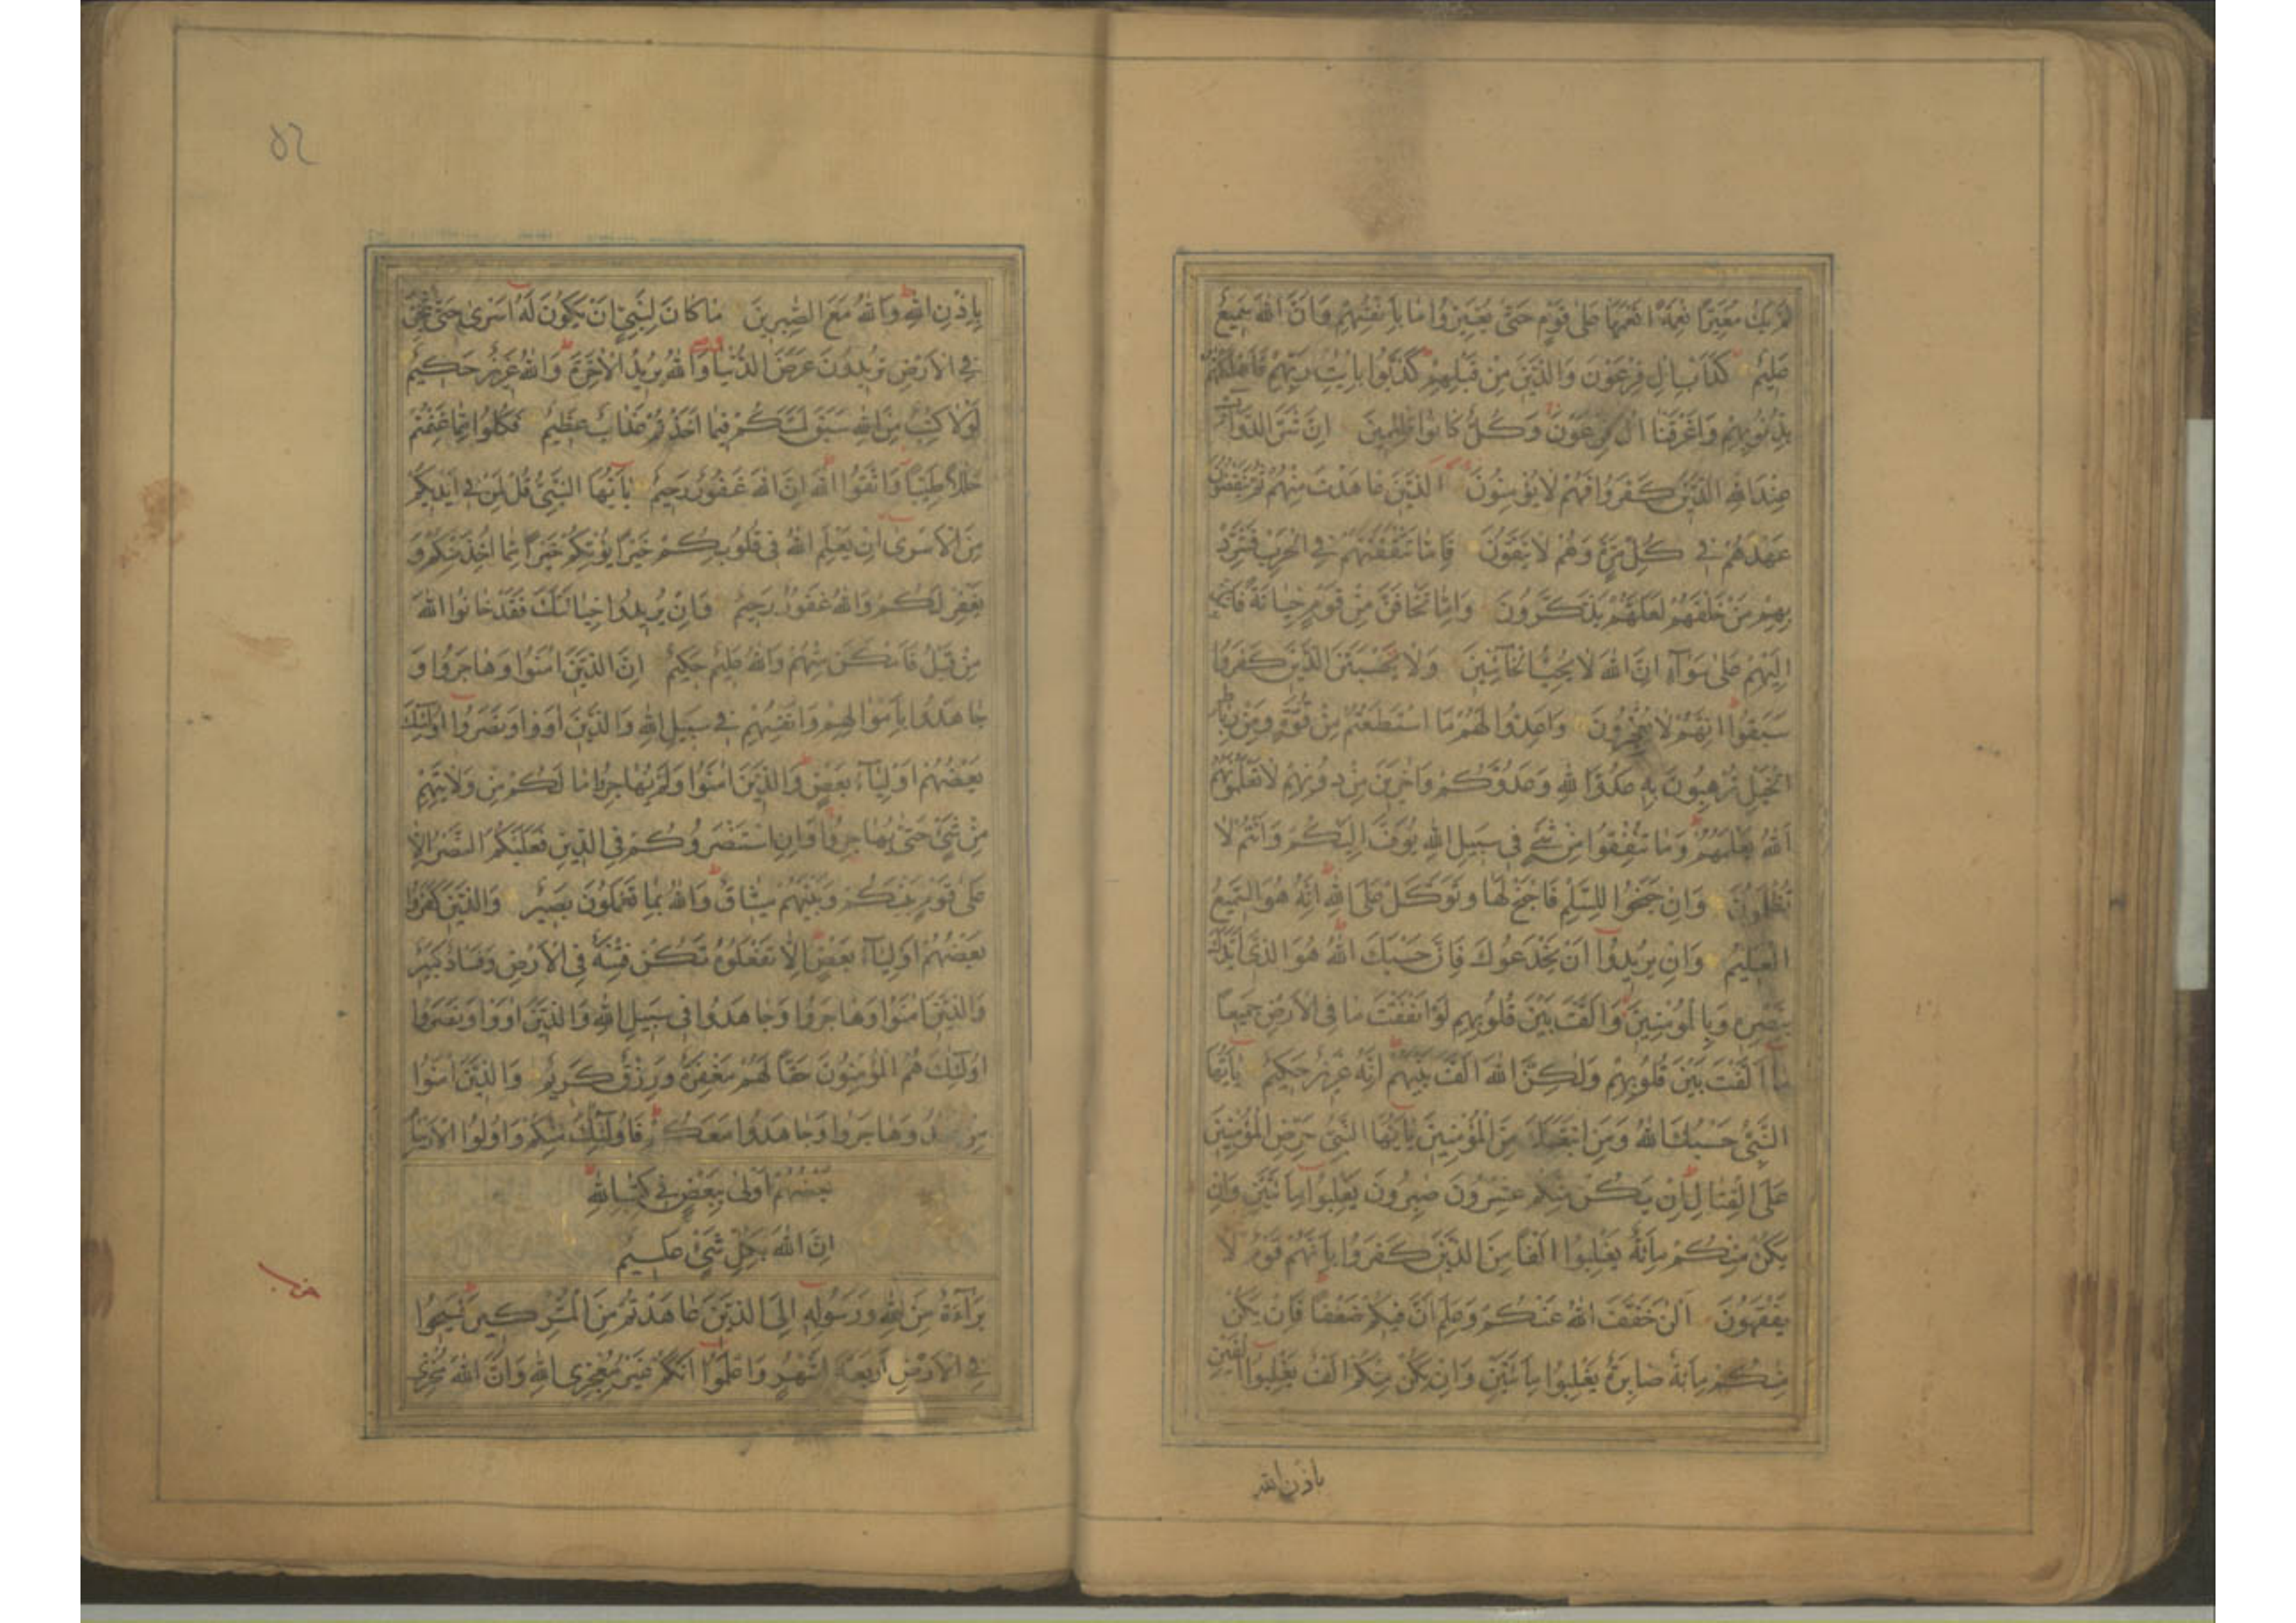 لَمْ يَكُ مُغَيِّرًا نِعْمَةً اَنْعَمَهَا عَلٰى قَوْمٍ حَتّٰى يُغَيِّرُوا مَا بِاَنْفُسِهِمْ وَاَنَّ اللهَ سَمِيعٌ
عَلِيمٌ كَدَاْبِ اٰلِ فِرْعَوْنَ وَالَّذِينَ مِنْ قَبْلِهِمْ كَذَّبُوا بِاٰيٰتِ رَبِّهِمْ فَاَهْلَكْنٰهُمْ
بِذُنُوبِهِمْ وَاَغْرَقْنَا اٰلَ فِرْعَوْنَ وَكُلٌّ كَانُوا ظٰلِمِينَ اِنَّ شَرَّ الدَّوَآبِّ
عِنْدَ اللهِ الَّذِينَ كَفَرُوا فَهُمْ لَا يُؤْمِنُونَ الَّذِينَ عَاهَدْتَ مِنْهُمْ ثُمَّ يَنْقُضُونَ
عَهْدَهُمْ فِي كُلِّ مَرَّةٍ وَهُمْ لَا يَتَّقُونَ فَاِمَّا تَثْقَفَنَّهُمْ فِي الْحَرْبِ فَشَرِّدْ
بِهِمْ مَنْ خَلْفَهُمْ لَعَلَّهُمْ يَذَّكَّرُونَ وَاِمَّا تَخَافَنَّ مِنْ قَوْمٍ خِيَانَةً فَانْبِذْ
اِلَيْهِمْ عَلٰى سَوَآءٍ اِنَّ اللهَ لَا يُحِبُّ الْخَآئِنِينَ وَلَا يَحْسَبَنَّ الَّذِينَ كَفَرُوا
سَبَقُوا اِنَّهُمْ لَا يُعْجِزُونَ وَاَعِدُّوا لَهُمْ مَا اسْتَطَعْتُمْ مِنْ قُوَّةٍ وَمِنْ رِبَاطِ
الْخَيْلِ تُرْهِبُونَ بِهِ عَدُوَّ اللهِ وَعَدُوَّكُمْ وَاٰخَرِينَ مِنْ دُونِهِمْ لَا تَعْلَمُونَهُمْ
اَللهُ يَعْلَمُهُمْ وَمَا تُنْفِقُوا مِنْ شَيْءٍ فِي سَبِيلِ اللهِ يُوَفَّ اِلَيْكُمْ وَاَنْتُمْ لَا
تُظْلَمُونَ وَاِنْ جَنَحُوا لِلسَّلْمِ فَاجْنَحْ لَهَا وَتَوَكَّلْ عَلَى اللهِ اِنَّهُ هُوَ السَّمِيعُ
الْعَلِيمُ وَاِنْ يُرِيدُوا اَنْ يَخْدَعُوكَ فَاِنَّ حَسْبَكَ اللهُ هُوَ الَّذِي اَيَّدَكَ
بِنَصْرِهِ وَبِالْمُؤْمِنِينَ وَاَلَّفَ بَيْنَ قُلُوبِهِمْ لَوْ اَنْفَقْتَ مَا فِي الْاَرْضِ جَمِيعًا
مَا اَلَّفْتَ بَيْنَ قُلُوبِهِمْ وَلٰكِنَّ اللهَ اَلَّفَ بَيْنَهُمْ اِنَّهُ عَزِيزٌ حَكِيمٌ يٰاَيُّهَا
النَّبِيُّ حَسْبُكَ اللهُ وَمَنِ اتَّبَعَكَ مِنَ الْمُؤْمِنِينَ يٰاَيُّهَا النَّبِيُّ حَرِّضِ الْمُؤْمِنِينَ
عَلَى الْقِتَالِ اِنْ يَكُنْ مِنْكُمْ عِشْرُونَ صٰبِرُونَ يَغْلِبُوا مِائَتَيْنِ وَاِنْ
يَكُنْ مِنْكُمْ مِائَةٌ يَغْلِبُوا اَلْفًا مِنَ الَّذِينَ كَفَرُوا بِاَنَّهُمْ قَوْمٌ لَا
يَفْقَهُونَ اَلْـٰٔنَ خَفَّفَ اللهُ عَنْكُمْ وَعَلِمَ اَنَّ فِيكُمْ ضَعْفًا فَاِنْ يَكُنْ
مِنْكُمْ مِائَةٌ صَابِرَةٌ يَغْلِبُوا مِائَتَيْنِ وَاِنْ يَكُنْ مِنْكُمْ اَلْفٌ يَغْلِبُوا اَلْفَيْنِ
باذن الله
۵۲
بِاِذْنِ اللهِ وَاللهُ مَعَ الصّٰبِرِينَ مَا كَانَ لِنَبِيٍّ اَنْ يَكُونَ لَهُ اَسْرٰى حَتّٰى يُثْخِنَ
فِي الْاَرْضِ تُرِيدُونَ عَرَضَ الدُّنْيَا وَاللهُ يُرِيدُ الْاٰخِرَةَ وَاللهُ عَزِيزٌ حَكِيمٌ
لَوْلَا كِتٰبٌ مِنَ اللهِ سَبَقَ لَمَسَّكُمْ فِيمَا اَخَذْتُمْ عَذَابٌ عَظِيمٌ فَكُلُوا مِمَّا غَنِمْتُمْ
حَلٰلًا طَيِّبًا وَاتَّقُوا اللهَ اِنَّ اللهَ غَفُورٌ رَحِيمٌ يٰاَيُّهَا النَّبِيُّ قُلْ لِمَنْ فِي اَيْدِيكُمْ
مِنَ الْاَسْرٰى اِنْ يَعْلَمِ اللهُ فِي قُلُوبِكُمْ خَيْرًا يُؤْتِكُمْ خَيْرًا مِمَّا اُخِذَ مِنْكُمْ وَ
يَغْفِرْ لَكُمْ وَاللهُ غَفُورٌ رَحِيمٌ وَاِنْ يُرِيدُوا خِيَانَتَكَ فَقَدْ خَانُوا اللهَ
مِنْ قَبْلُ فَاَمْكَنَ مِنْهُمْ وَاللهُ عَلِيمٌ حَكِيمٌ اِنَّ الَّذِينَ اٰمَنُوا وَهَاجَرُوا وَ
جَاهَدُوا بِاَمْوَالِهِمْ وَاَنْفُسِهِمْ فِي سَبِيلِ اللهِ وَالَّذِينَ اٰوَوْا وَنَصَرُوا اُولٰٓئِكَ
بَعْضُهُمْ اَوْلِيَآءُ بَعْضٍ وَالَّذِينَ اٰمَنُوا وَلَمْ يُهَاجِرُوا مَا لَكُمْ مِنْ وَلَايَتِهِمْ
مِنْ شَيْءٍ حَتّٰى يُهَاجِرُوا وَاِنِ اسْتَنْصَرُوكُمْ فِي الدِّينِ فَعَلَيْكُمُ النَّصْرُ اِلَّا
عَلٰى قَوْمٍ بَيْنَكُمْ وَبَيْنَهُمْ مِيثَاقٌ وَاللهُ بِمَا تَعْمَلُونَ بَصِيرٌ وَالَّذِينَ كَفَرُوا
بَعْضُهُمْ اَوْلِيَآءُ بَعْضٍ اِلَّا تَفْعَلُوهُ تَكُنْ فِتْنَةٌ فِي الْاَرْضِ وَفَسَادٌ كَبِيرٌ
وَالَّذِينَ اٰمَنُوا وَهَاجَرُوا وَجَاهَدُوا فِي سَبِيلِ اللهِ وَالَّذِينَ اٰوَوْا وَنَصَرُوا
اُولٰٓئِكَ هُمُ الْمُؤْمِنُونَ حَقًّا لَهُمْ مَغْفِرَةٌ وَرِزْقٌ كَرِيمٌ وَالَّذِينَ اٰمَنُوا
مِنْ بَعْدُ وَهَاجَرُوا وَجَاهَدُوا مَعَكُمْ فَاُولٰٓئِكَ مِنْكُمْ وَاُولُوا الْاَرْحَامِ
بَعْضُهُمْ اَوْلٰى بِبَعْضٍ فِي كِتٰبِ اللهِ
اِنَّ اللهَ بِكُلِّ شَيْءٍ عَلِيمٌ
بَرَآءَةٌ مِنَ اللهِ وَرَسُولِهِ اِلَى الَّذِينَ عَاهَدْتُمْ مِنَ الْمُشْرِكِينَ فَسِيحُوا
فِي الْاَرْضِ اَرْبَعَةَ اَشْهُرٍ وَاعْلَمُوا اَنَّكُمْ غَيْرُ مُعْجِزِي اللهِ وَاَنَّ اللهَ مُخْزِي